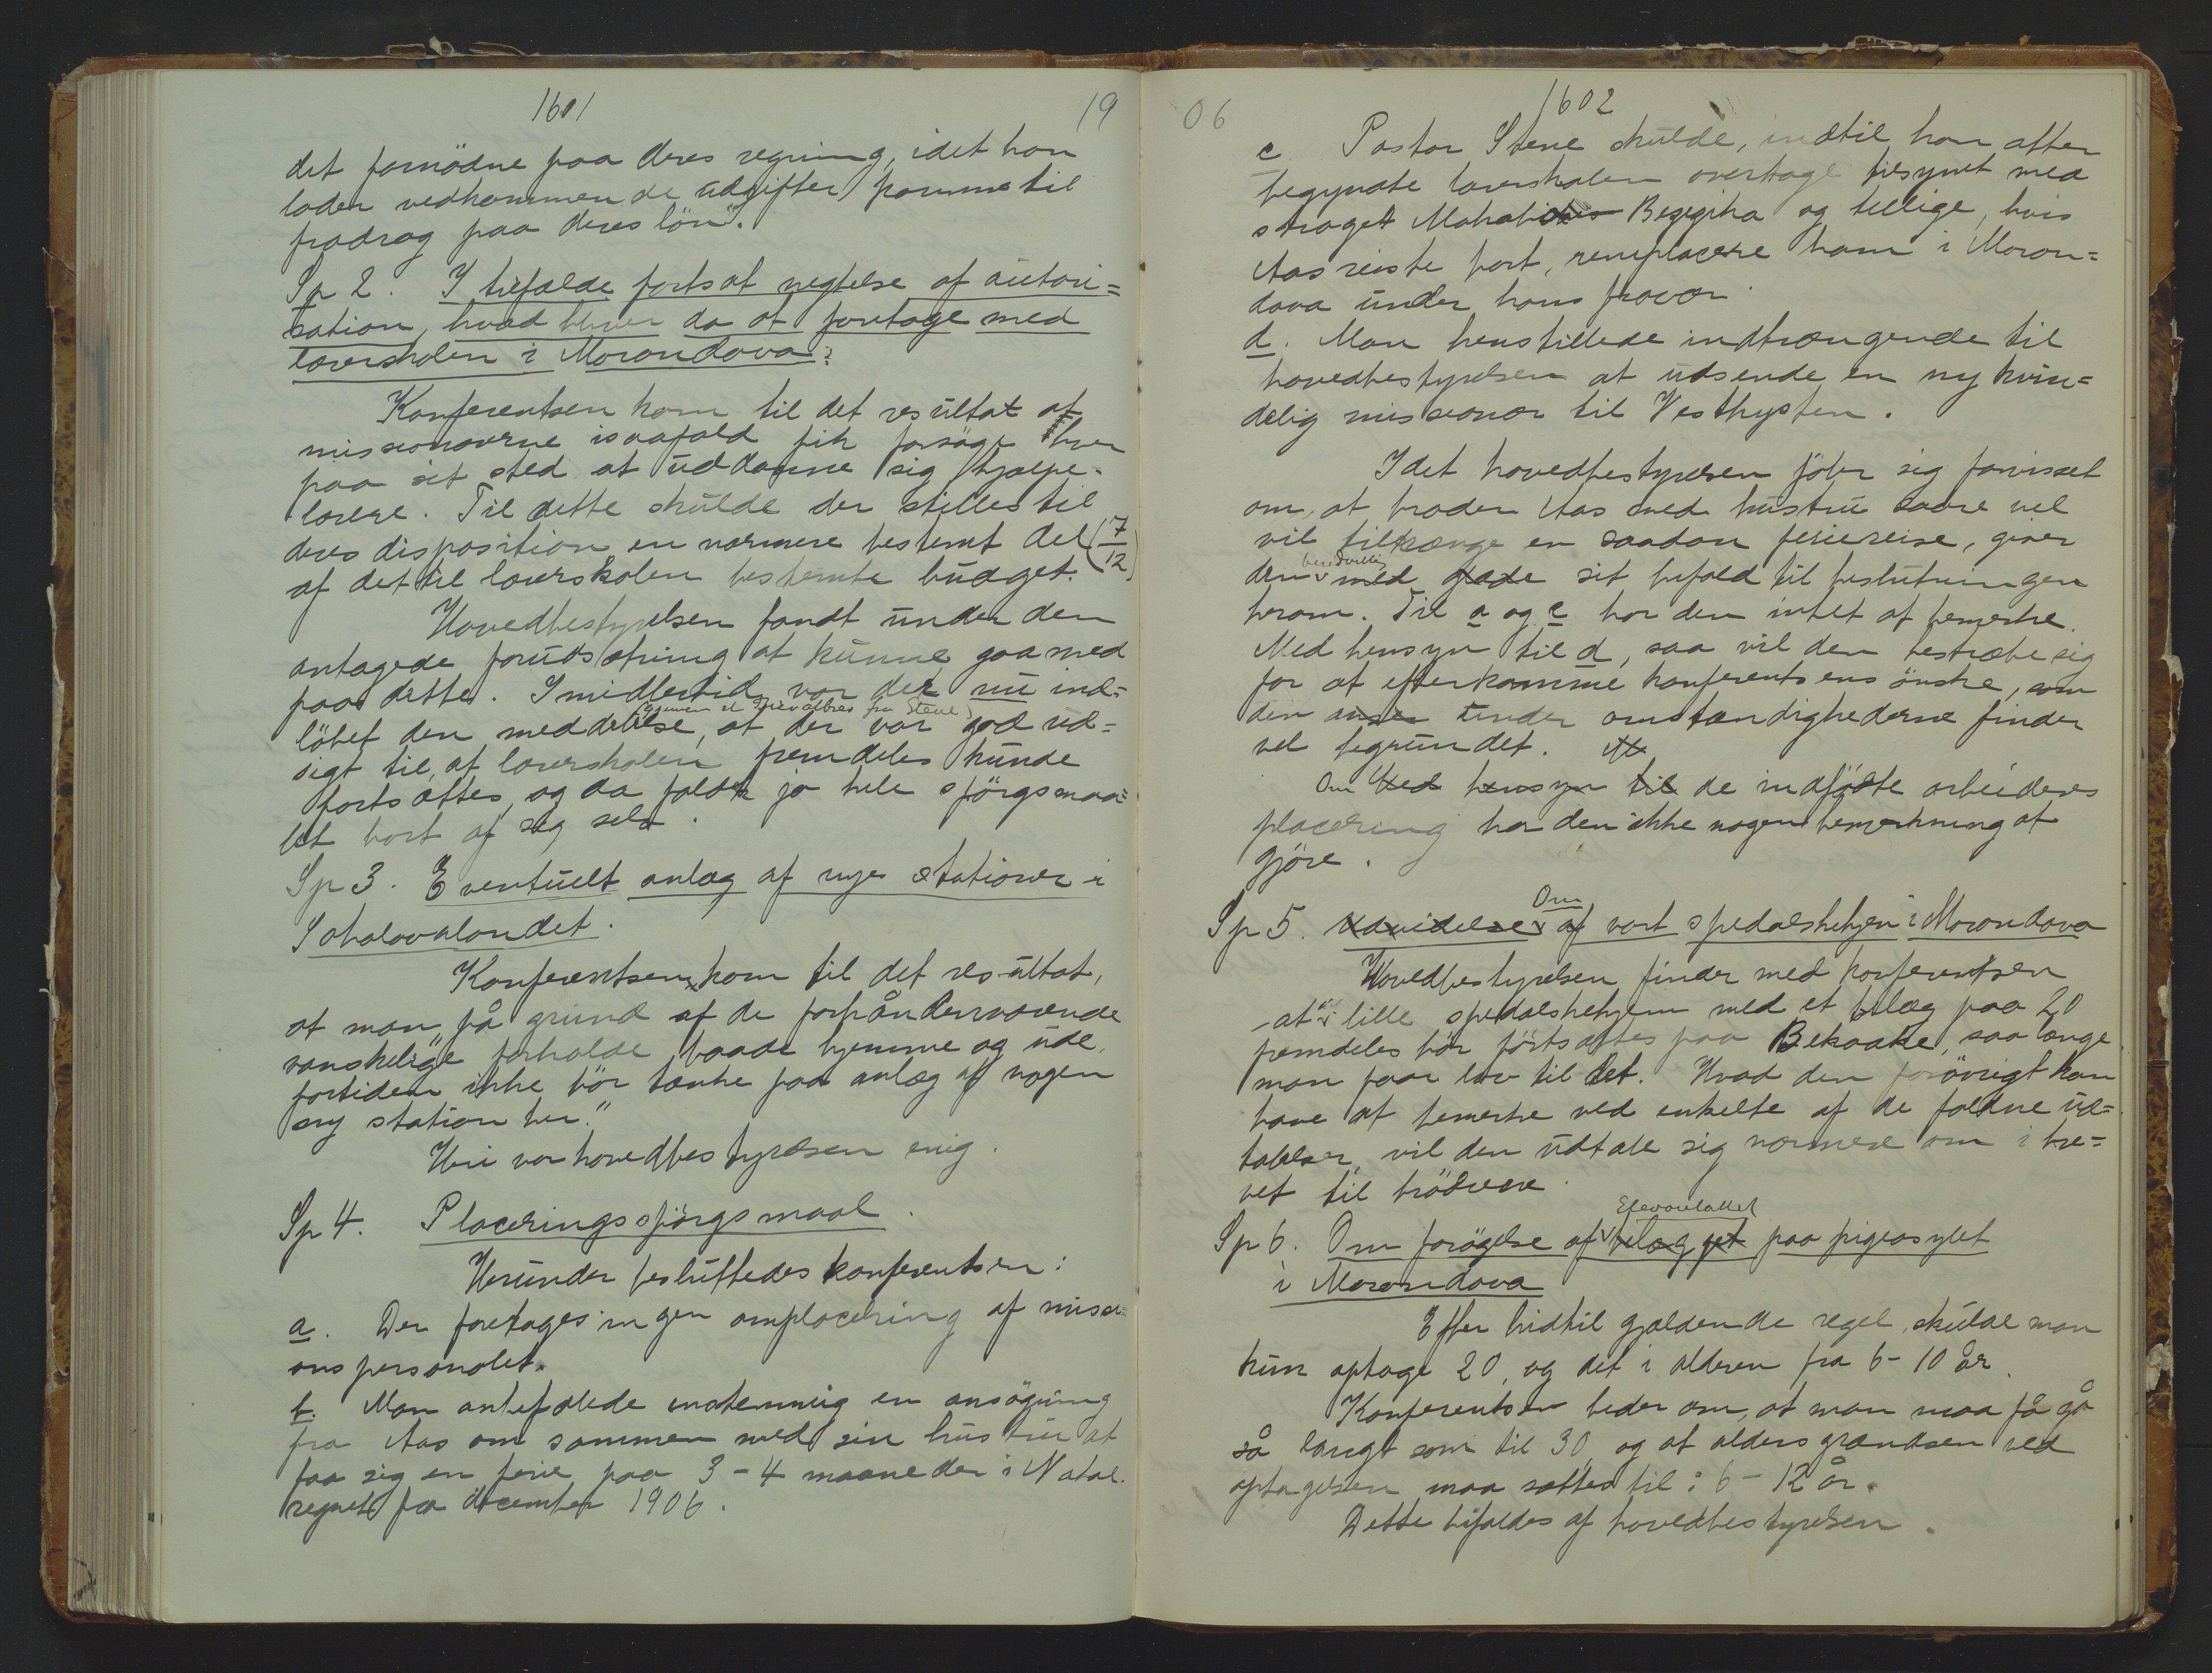 1601
19
det fornödne paa deres regning, idet han
lader vedkommende udgifter komme til
fradrag paa deres lön".
Sp 2. I tilfælde fortsat negtelse af autori=
sation, hvad bliver da at foretage med
lærerskolen i Morondava?
Konferentsen kom til det resultat at
missionærerne isaafald fik forsöge hver
paa sit sted at uddanne sig hjælpe-
lærere. Til dette skulde der stilles til
deres disposition en nærmere bestemt del (7/12)
af det til lærerskolen bestemte budget.
Hovedbestyrelsen fandt under den
antagede forudsætning at kunne gaa med
paa dette. Imidlertid var der nu ind=
(gjennem et privatbrev fra Stene)
löbet den meddelelse, at der var god ud=
sigt til, at lærerskolen fremdeles kunde
fortsættes, og da faldt jo hele spörgsmaa=
let bort af sig selv.
Sp 3. Eventuelt anlæg af nye stationer i
Sakalavalandet.
Konferentsen kom til det resultat,
at man "på grund af de forhåndenværende
vanskelige forholde baade hjemme og ude,
fortiden ikke bör tænke paa anlæg af nogen
ny station her."
Heri var hovedbestyrelsen enig.
Sp 4. Placeringsspörgsmaal.
Herunder besluttedes konferentsen:
a. Der foretages ingen omplacering af missi=
onspersonalet.
b. Man anbefalede enstemmig en ansögning
fra Aas om sammen med sin hustru at
faa sig en ferie paa 3-4 maaneder i Natal.
regnet fra december 1906.
06
1602
c. Pastor Stene skulde, indtil han atter
begyndte lærerskolen overtage tilsynet med
strøget Mahabo Bezezika og tillige, hvis
Aas reiste bort, remplacere ham i Moron=
dava under hans fravær.
d. Man henstillede indtrængende til
hovedbestyrelsen at udsende en ny kvin=
delig missionær til Vestkysten.
Idet hovedbestyrelsen föler sig forvisset
om, at broder Aas med hustru saare vel
vil tiltrænge en saadan feriereise, giver
beredvillig
den med glæde sit bifald til beslutningen
herom. Til a og c har den intet at bemerke.
Med hensyn til d, saa vil den bestræbe sig
for at efterkomme konferentsens önske, som
den anser under omstændighederne finder
vel begrundet.
Om Ved hensyn til de indfödte arbeideres
placering har den ikke nogen bemerkning at
gjöre.
Om
Sp 5. Udvidelse af vort spedalskehjem i Morondava
Hovedbestyrelsen finder med konferentsen
at et lille spedalskehjem med et belæg paa 20
fremdeles bör fortsættes paa Bekoake, saa længe
man faar lov til det. Hvad den forövrigt kan
have at bemerke ved enkelte af de faldne ud=
talelser, vil den udtale sig nærmere om i bre=
vet til brödrene.
Elevantallet
Sp 6. Om forögelse af belægget paa pigeasylet
i Morondava
Efter hidtil gjældende regel skulde man
kun optage 20, og det i alderen fra 6-10 år.
Konferentsen beder om, at man maa få gå
så langt som til 30, og at aldersgrændsen ved
optagelsen maa sættes til: 6-12 år.
Dette bifaldes af hovedbestyrelsen.